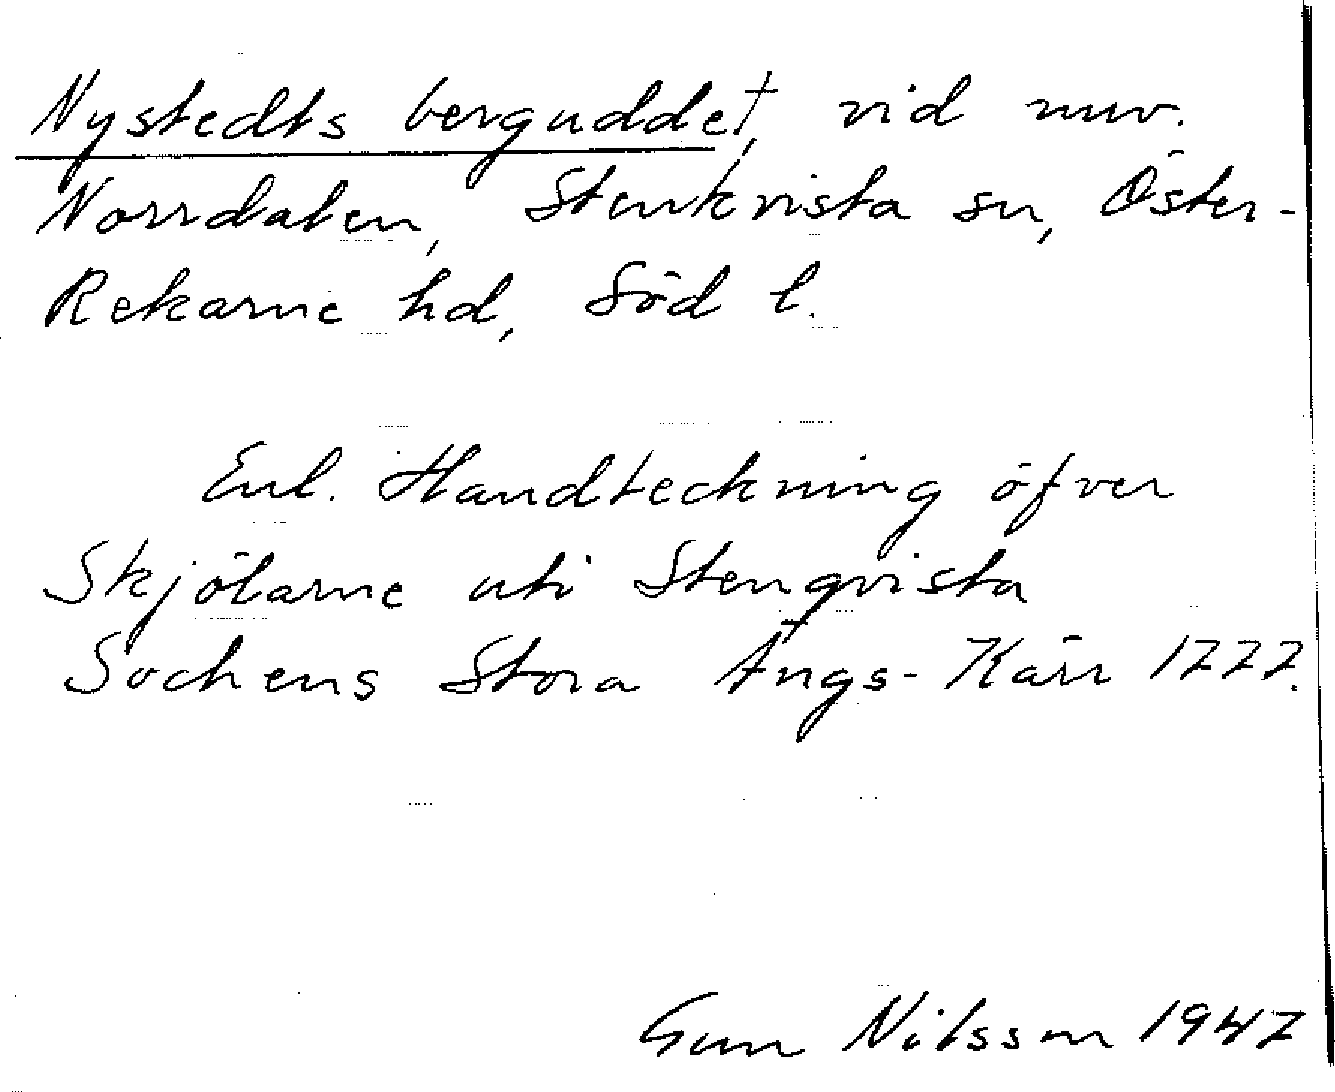 Nystedts berguddet, vid nuv.
Norrdalen, Stenkvista sn, Öster-
Rekarne hd, Söd l.
Enl. Handteckning öfver
Skjölarne uti Stenqvista
Sochens Stora Ängs-Kärr 1777.
Gun Nilsson 1947